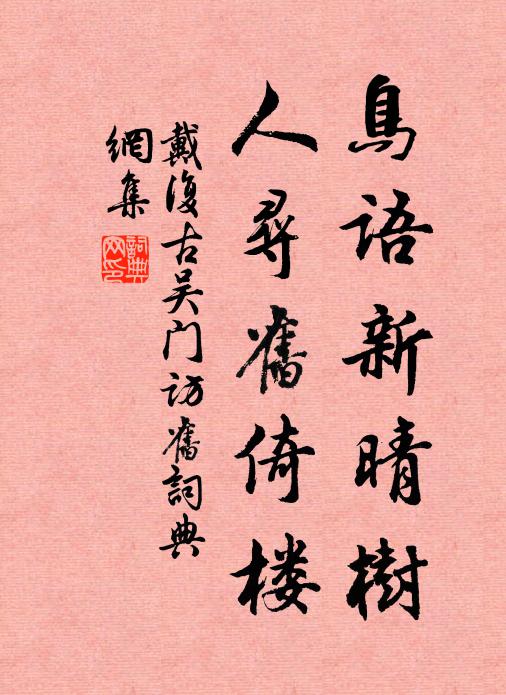 鳥語新晴樹
人尋舊倚楼
戴復古吴门访舊詞典
網集
詞典网印